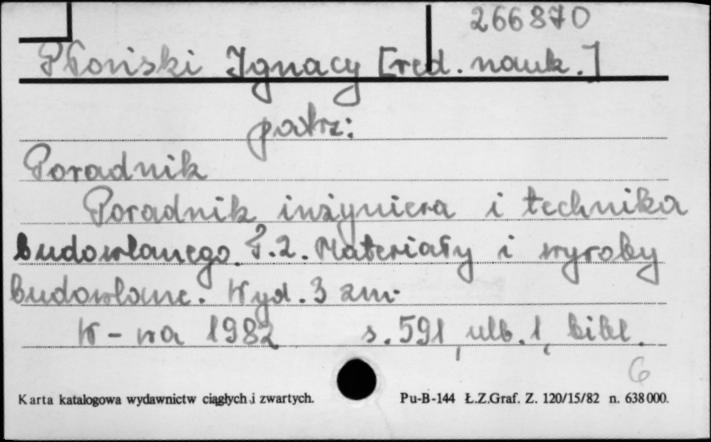 266870
Płoński Ignacy [red. nauk.]
patrz:
Poradnik
Poradnik inżyniera i technika
budowlanego. T.2. Materiały i wyroby
budowlane. Wyd. 3 zm.
W-wa 1982 s. 591, ulb. 1, bibl.
6
Karta katalogowa wydawnictw ciągłych i zwartych. Pu-B-144 Ł.Z.Graf. Z. 120/15/82 n. 638000.